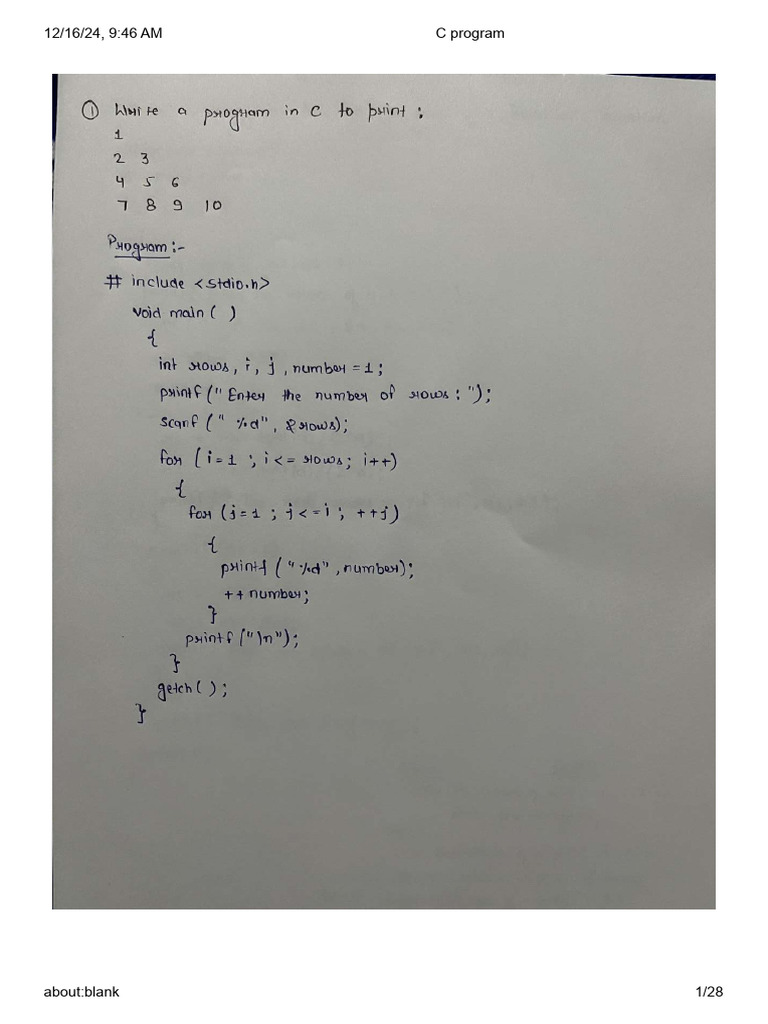 12/16/24, 9:46 AM C program
① Write a program in C to print :
1
2 3
4 5 6
7 8 9 10
Program :-
# include <stdio.h>
void main ( )
{
int rows, i, j, number = 1;
printf (" Enter the number of rows : ");
scanf (" %d", &rows);
for (i = 1 ; i <= rows; i++)
{
for (j = 1 ; j <= i ; ++j)
{
printf ( " %d" , number);
++ number;
}
printf ("\n");
}
getch ( ) ;
}
about:blank 1/28